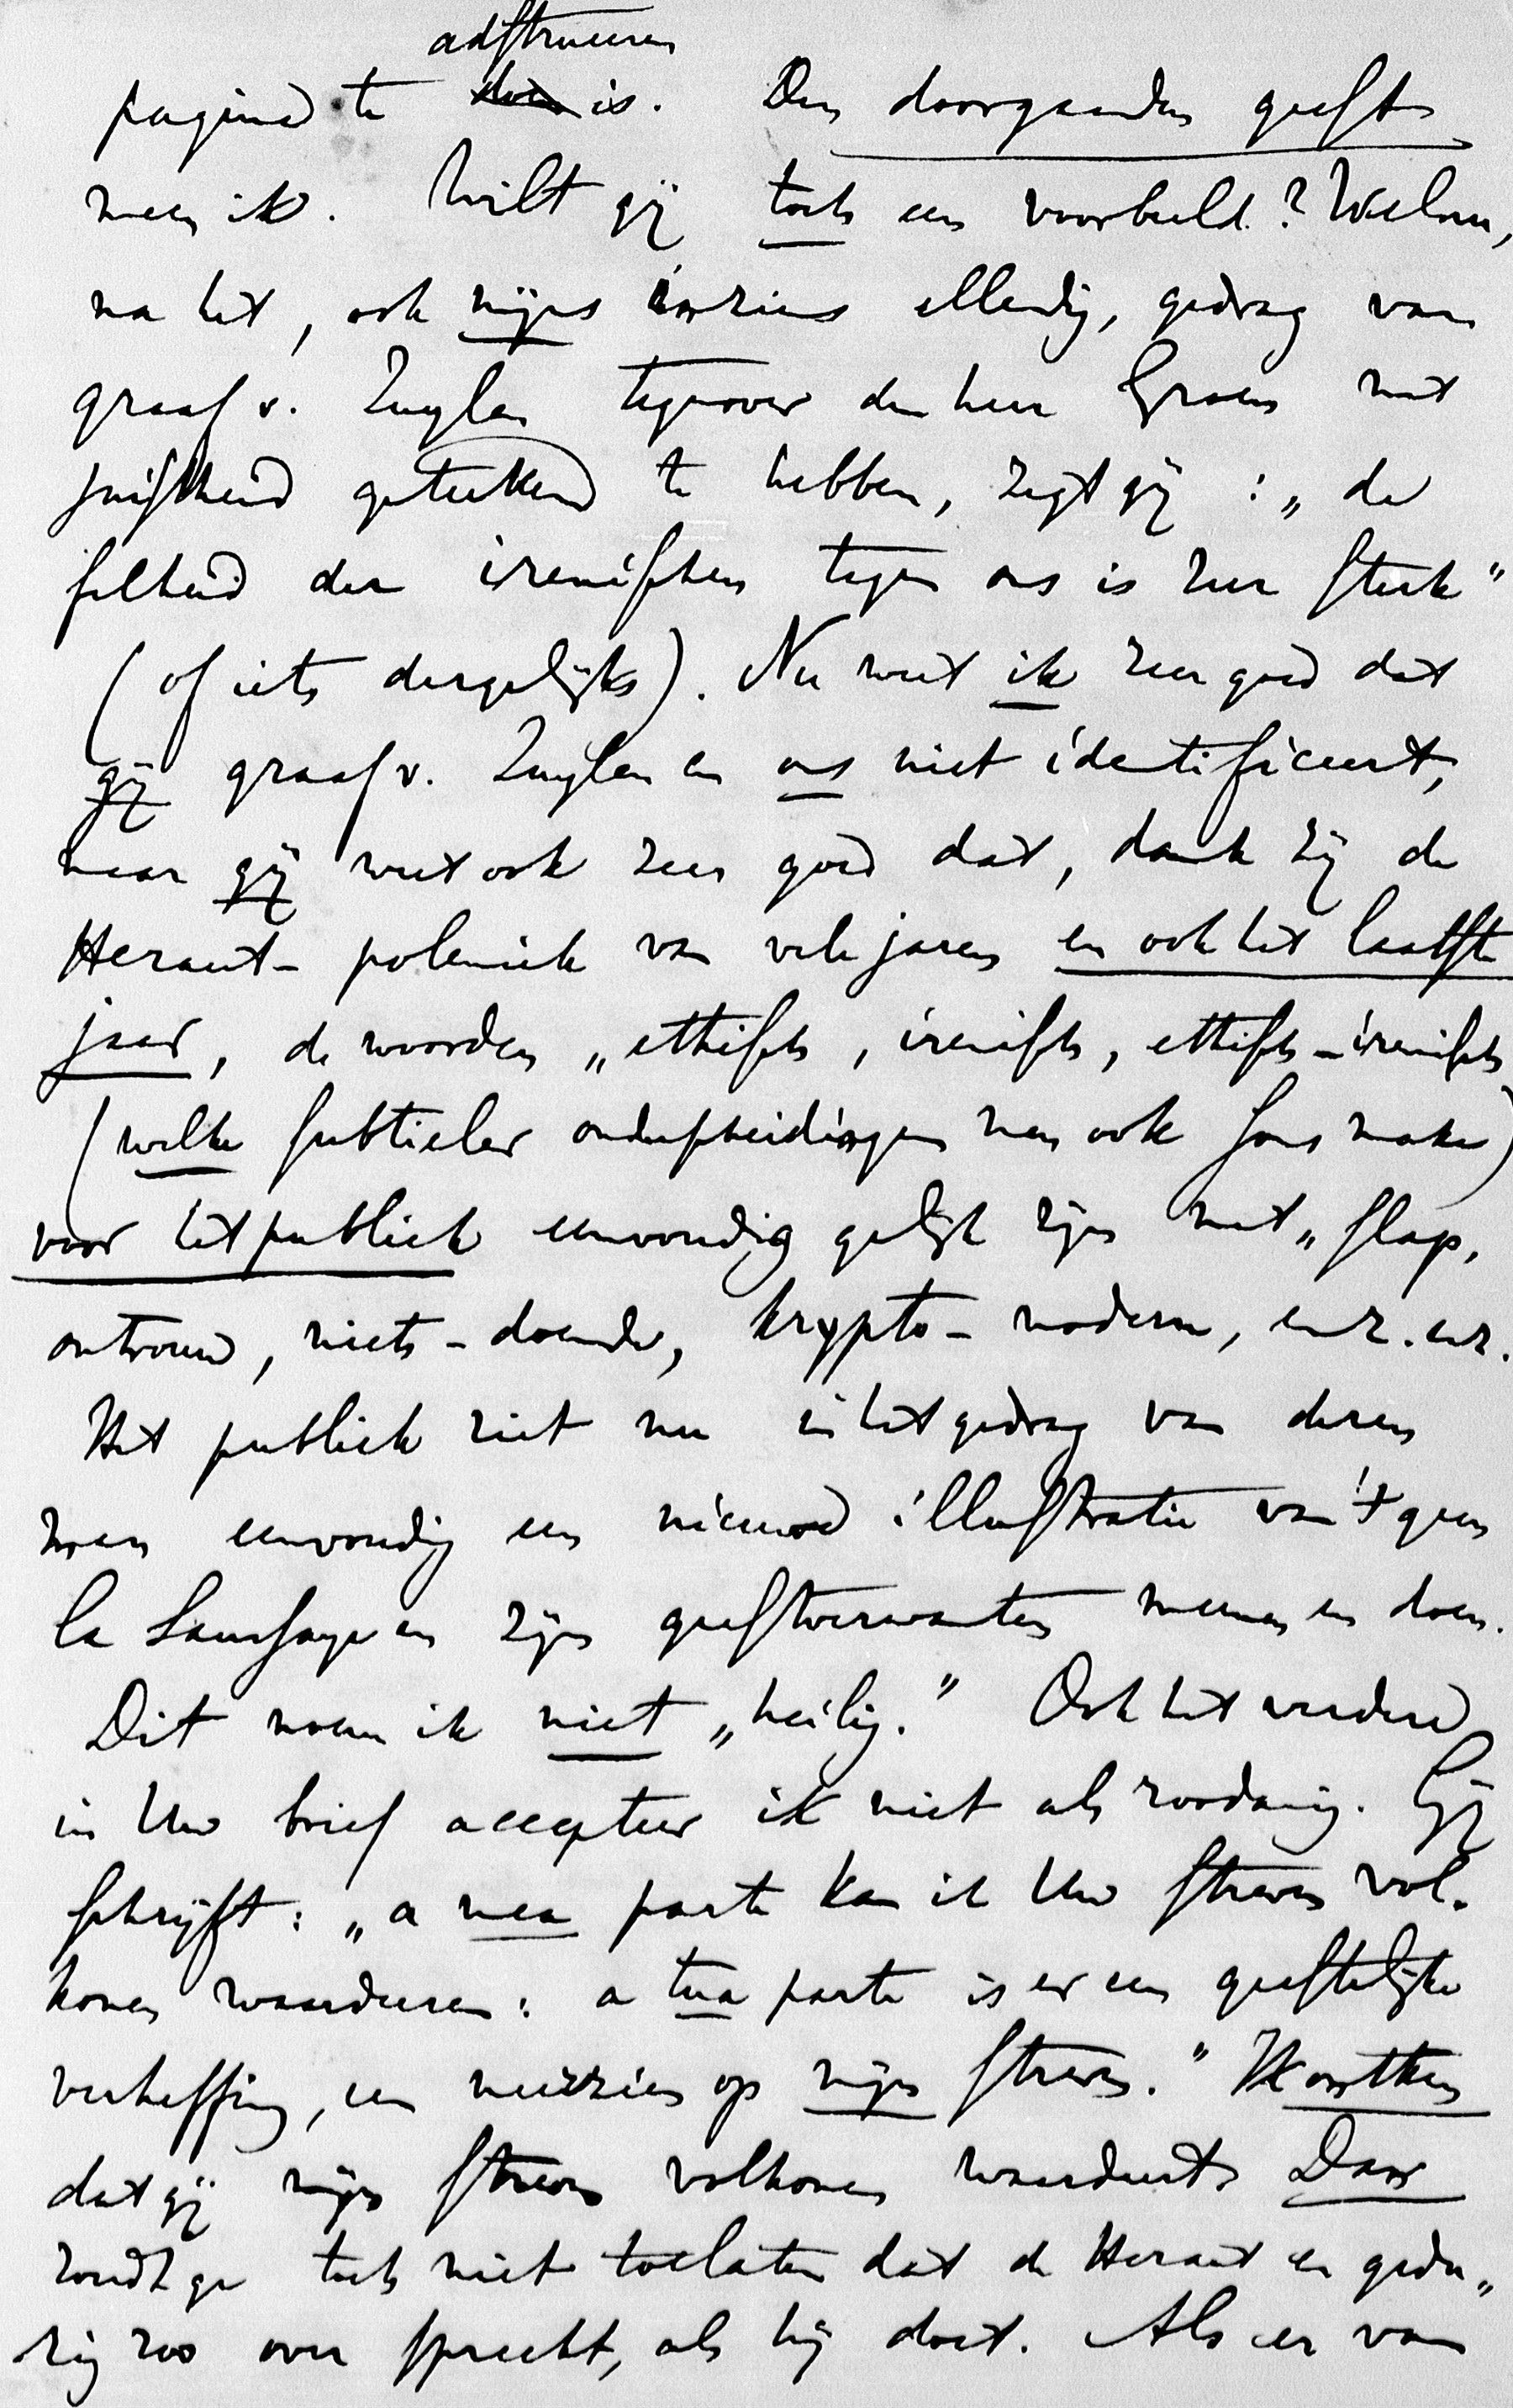 adstrueeren
pagina te doen is. Den doorgaanden geest
meen ik. Wilt gij toch een voorbeeld? Welnu,
na het, ook mijns inziens ellendig, gedrag van
graaf v. Zuylen tegenover den heer Groen met
juistheid geteekend te hebben, zegt gij: „de
felheid der irenischen tegen ons is zeer sterk”
(of iets dergelijks). Nu weet ik zeer goed dat
gij graaf v. Zuylen en ons niet identificeert,
maar gij weet ook zeer goed dat, dank zij de
Heraut-polemiek van vele jaren en ook het laatste
jaar, de woorden „ethisch, irenisch, ethisch-irenisch
(welke subtieler onderscheidingen men ook soms make)
voor het publiek eenvoudig gelijk zijn met „slap,
ontrouw, niets-doende, krypto-modern, enz. enz.
Het publiek ziet nu in het gedrag van dezen
man eenvoudig een nieuwe illustratie van 't geen
la Saussaye en zijn geestverwanten meenen en doen.
Dit noem ik niet „heilig.” Ook het verdere
in Uw brief accepteer ik niet als zoodanig. Gij
schrijft: „a mea parte kan ik Uw streven vol-
komen waardeeren: a tua parte is er een geestelijke
verheffing, een neerzien op mijn streven.” Hoe
dat gij mijn streven volkomen waardeert? Dan
zoudt ge toch niet toelaten dat de Heraut er gedu„
rig zoo over spreekt, als hij doet. Als er van